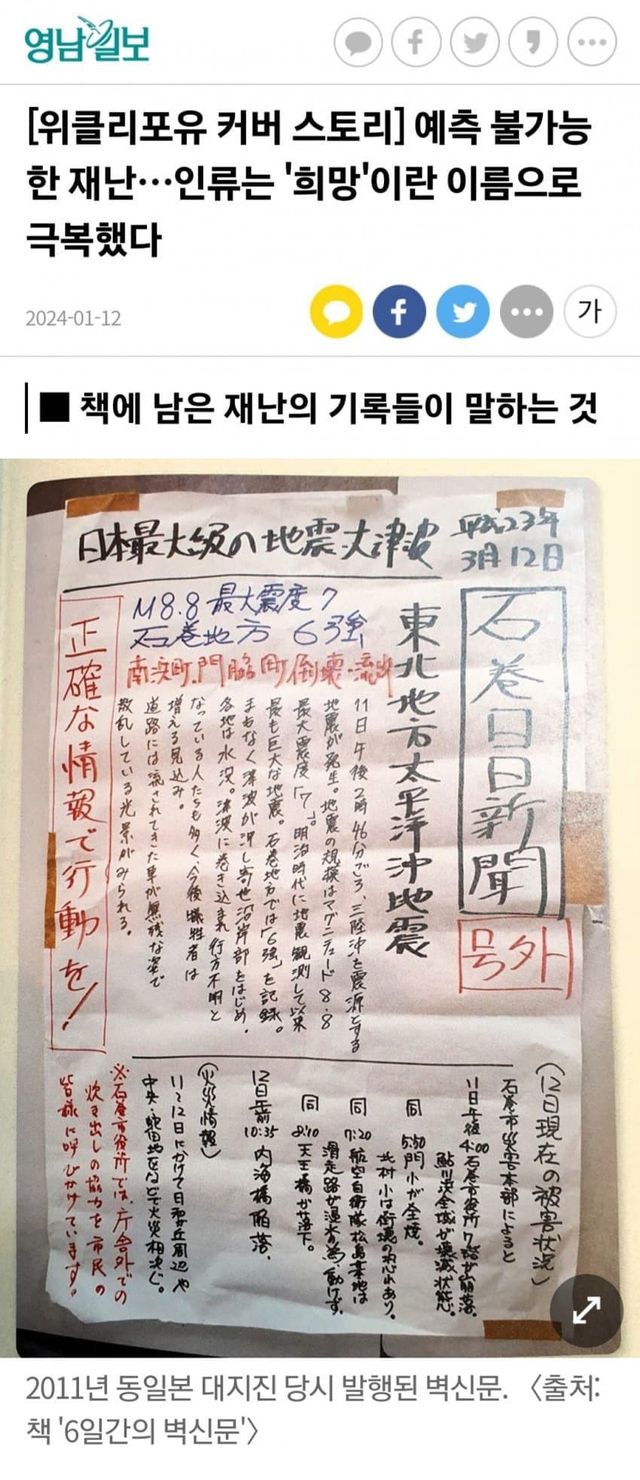 영남일보
[위클리포유 커버 스토리] 예측 불가능
한 재난…인류는 '희망'이란 이름으로
극복했다
2024-01-12
가
■ 책에 남은 재난의 기록들이 말하는 것
日本最大級の地震・大津波
平成23年
3月12日
石巻日日新聞
号外
東北地方太平洋沖地震
M8.8 最大震度7
石巻地方 6強
南浜町、門脇町倒壊・流出
正確な情報で行動を!
11日午後2時46分ごろ、三陸沖を震源とする
地震が発生。地震の規模はマグニチュード8.8
最大震度「7」。明治時代に地震観測して以来
最も巨大な地震。石巻地方では「6強」を記録。
まもなく津波が押し寄せ沿岸部をはじめ、
各地は水没。津波に巻き込まれ行方不明と
なっている人たちも多く、今後犠牲者は
増える見込み。
道路には流されてきた車が無残な姿で
散乱している光景がみられる。
(12日現在の被害状況)
石巻市災害本部によると
11日午後4:00 石巻市役所7階が崩落。
鮎川浜全域が壊滅状態。
同 5:50 門小が全焼。
北村小は倒壊の恐れあり。
同 7:20 航空自衛隊松島基地は
滑走路が浸水の為、動けず。
同 8:10 天王橋が落下。
12日午前10:35 内海橋陥落。
(火災情報)
11~12日にかけて日和が丘周辺や
中央・蛇田地区などで火災相次ぐ。
※石巻市役所では、庁舎外での
炊き出しの協力を市民の
皆様に呼びかけています。
2011년 동일본 대지진 당시 발행된 벽신문. 〈출처:
책 '6일간의 벽신문'〉